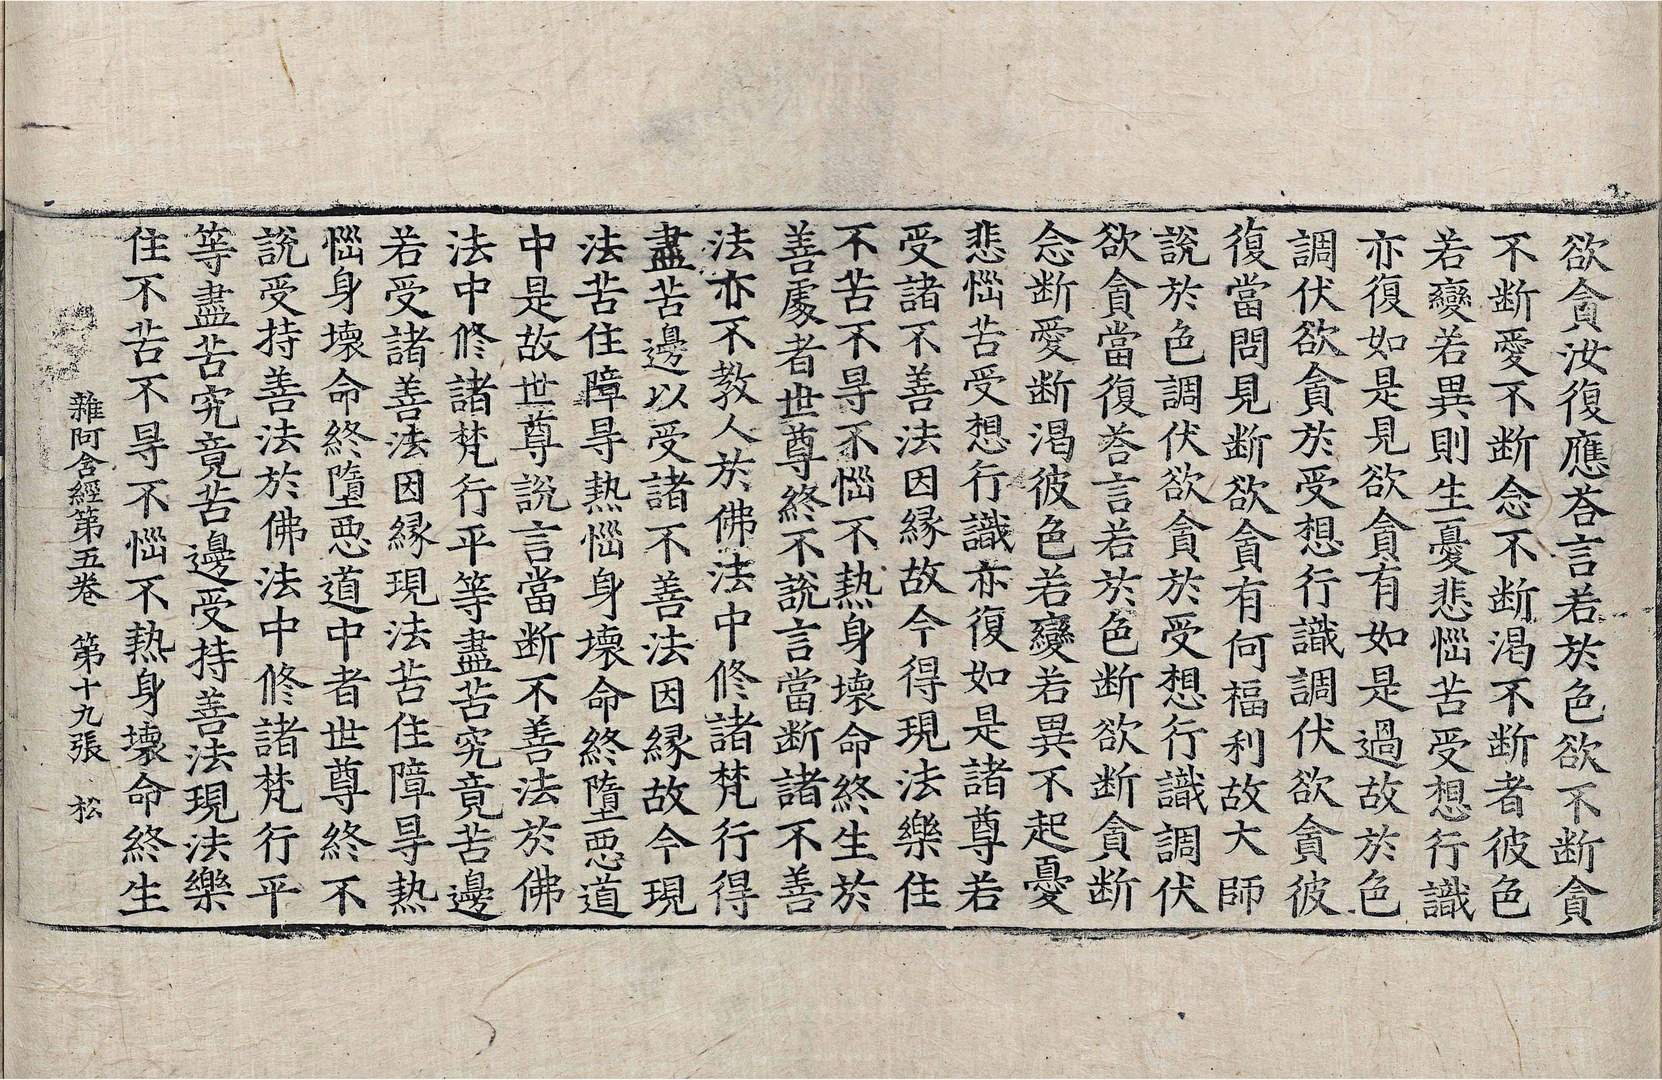 欲貪汝復應荅言若於色欲不断貪
不断愛不断念不断渴不断者彼色
若變若異則生憂悲惱苦受想行識
亦復如是見欲貪有如是過故於色
調伏欲貪於受想行識調伏欲貪彼
復當問見断欲貪有何福利故大師
說於色調伏欲貪於受想行識調伏
欲貪當復荅言若於色断欲断貪断
念断愛断渴彼色若變若異不起憂
悲惱苦受想行識亦復如是諸尊若
受諸不善法因縁故今得現法樂住
不苦不㝵不惱不熱身壞命終生於
善處者世尊終不說言當断諸不善
法亦不教人於佛法中修諸梵行得
盡苦邊以受諸不善法因縁故今現
法苦住障㝵熱惱身壞命終墮惡道
中是故世尊說言當断不善法於佛
法中修諸梵行平等盡苦究竟苦邊
若受諸善法因縁現法苦住障㝵熱
惱身壞命終墮惡道中者世尊終不
說受持善法於佛法中修諸梵行平
等盡苦究竟苦邊受持善法現法樂
住不苦不㝵不惱不熱身壞命終生
雜阿含經第五卷 第十九張 松